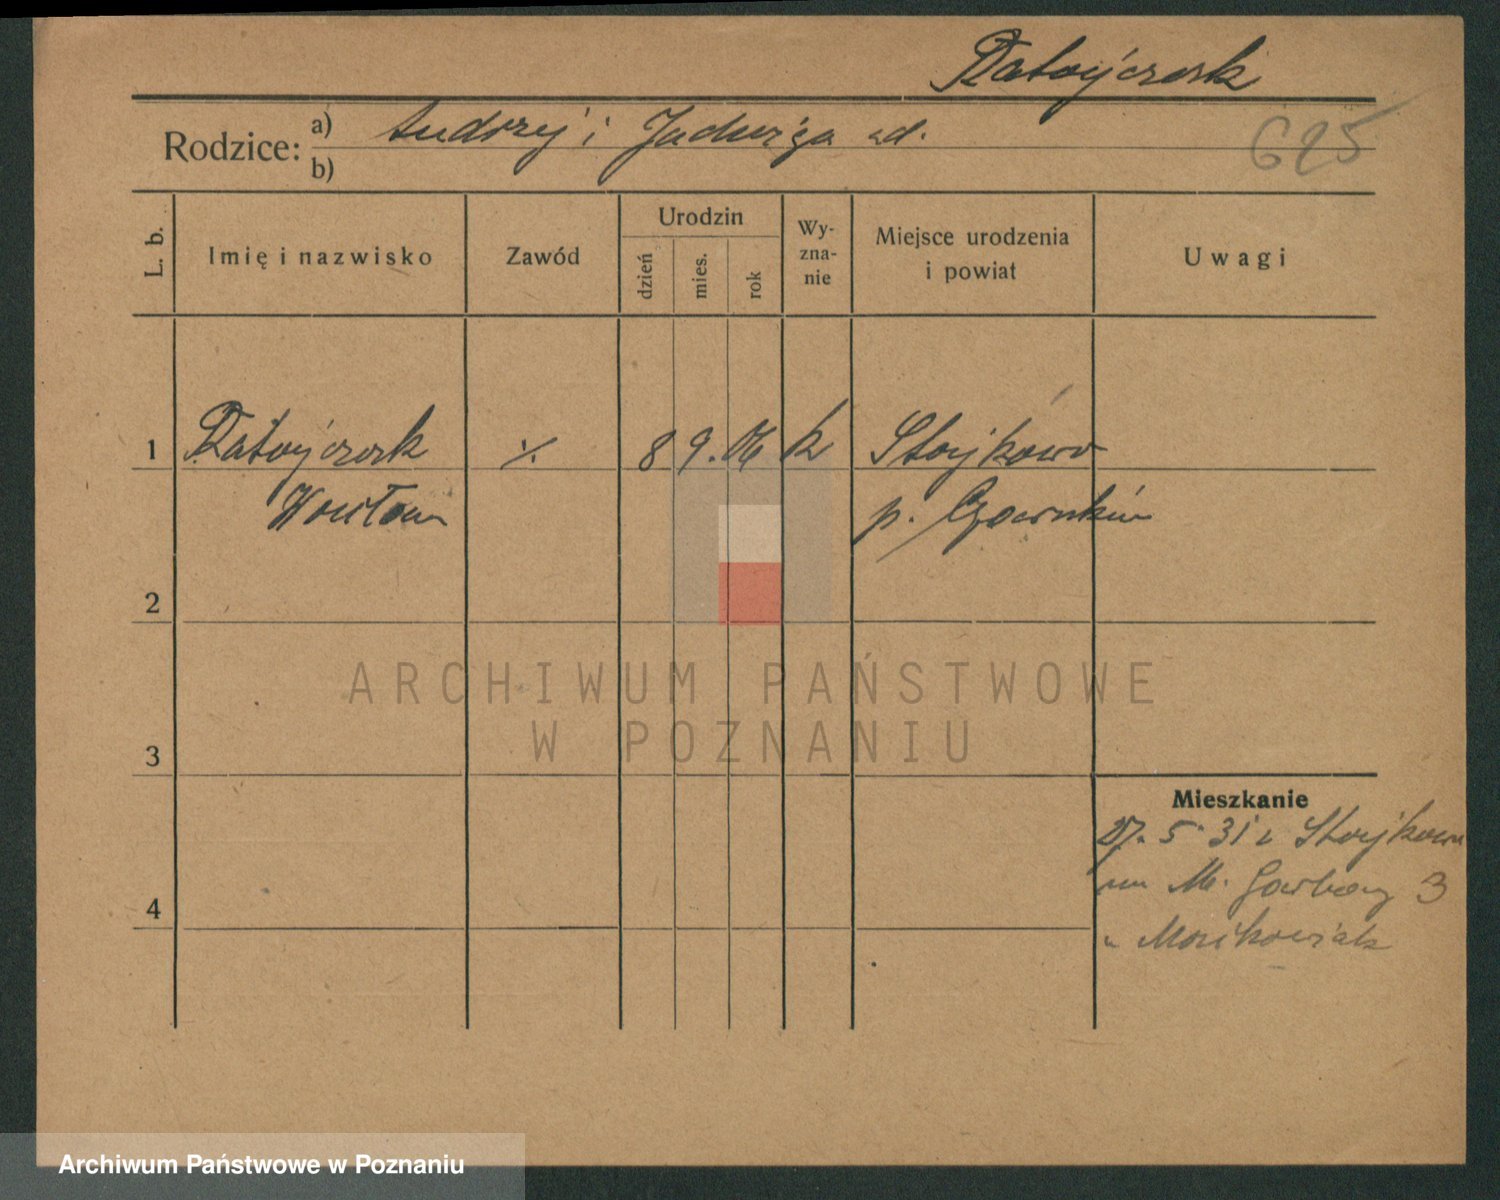 Ratajczak
Rodzice: a) Andrzej i Jadwiga zd.
b)
625
L. b.
Imię i nazwisko
Zawód
Urodzin
dzień
mies.
rok
Wy-
zna-
nie
Miejsce urodzenia
i powiat
Uwagi
1 Ratajczak ./. 8 9. 06 k Stajkowo
p. Czarnków
2
3
4
Mieszkanie
27. 5. 31 z Stajkowa
na M. Garbary 3
ARCHIWUM PAŃSTWOWE
W POZNANIU
Archiwum Państwowe w Poznaniu